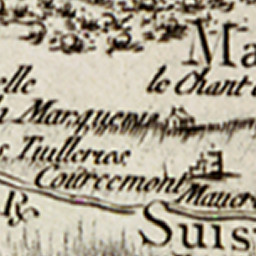 Ma
elle
le Chant
h Marquenie
s. Tuilleries
Courcemont
Mauer
R.
Suis